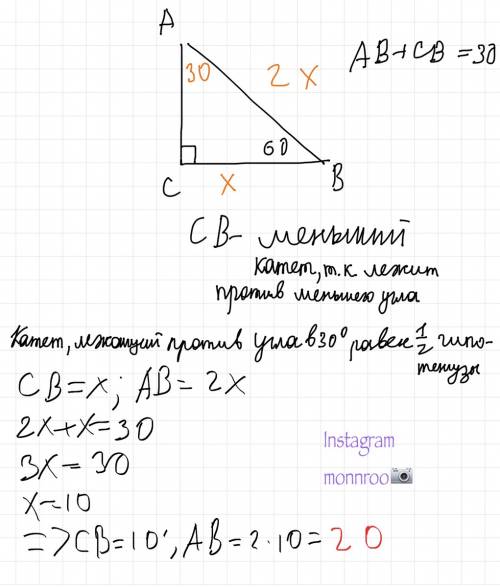 A
30
2x
AB+CB=30
60
C
x
B
CB- меньший
катет, т.к лежит
против меньшего угла
Катет, лежащий против угла в 30° равен 1/2 гипо-
тенузы
CB=x; AB=2x
2x+x=30
3x=30
x=10
=>CB=10, AB=2·10=20
Instagram
monnroo📷